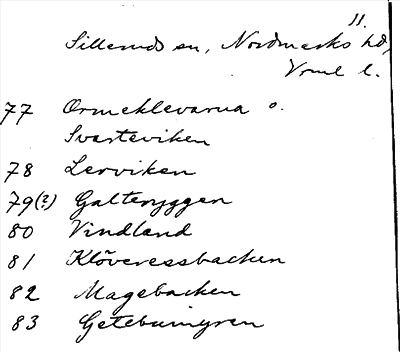 11.
Silleruds sn, Nordmarks hd,
Vrml l.
77 Ormeklevarna o.
Svarteviken
78 Lerviken
79(?) Galteryggen
80 Vindland
81 Klöveressbacken
82 Magebacken
83 Getebuimyren